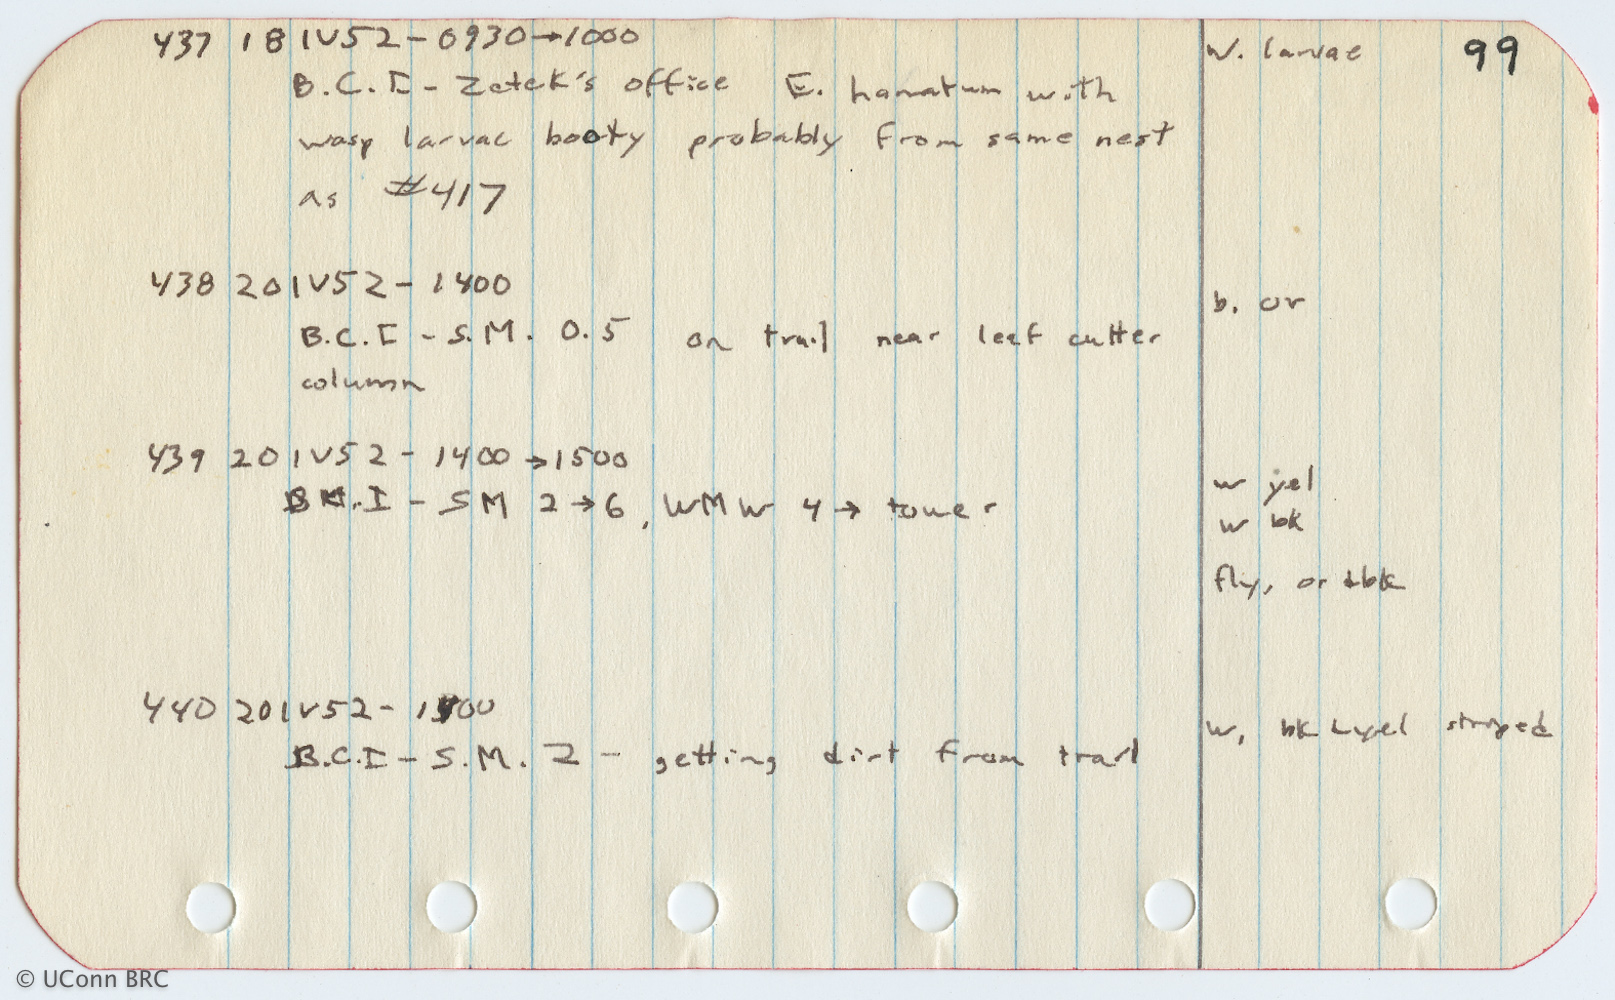 99
437 18 IV 52 - 0930→1000
W. larvae
B.C.I - Zetek's office E. hamatum with
wasp larvae booty probably from same nest
as #417
438 20 IV 52 - 1400
b. or
B.C.I - S.M. 0.5 on trail near leaf cutter
column
439 20 IV 52 - 1400→1500
w yel
B.C.I - SM 2→6, WMW 4→ tower
w bk
fly, or +bk
440 20 IV 52 - 1400
w, bk + yel striped
B.C.I - S.M. 2 - getting dirt from trail
© UConn BRC